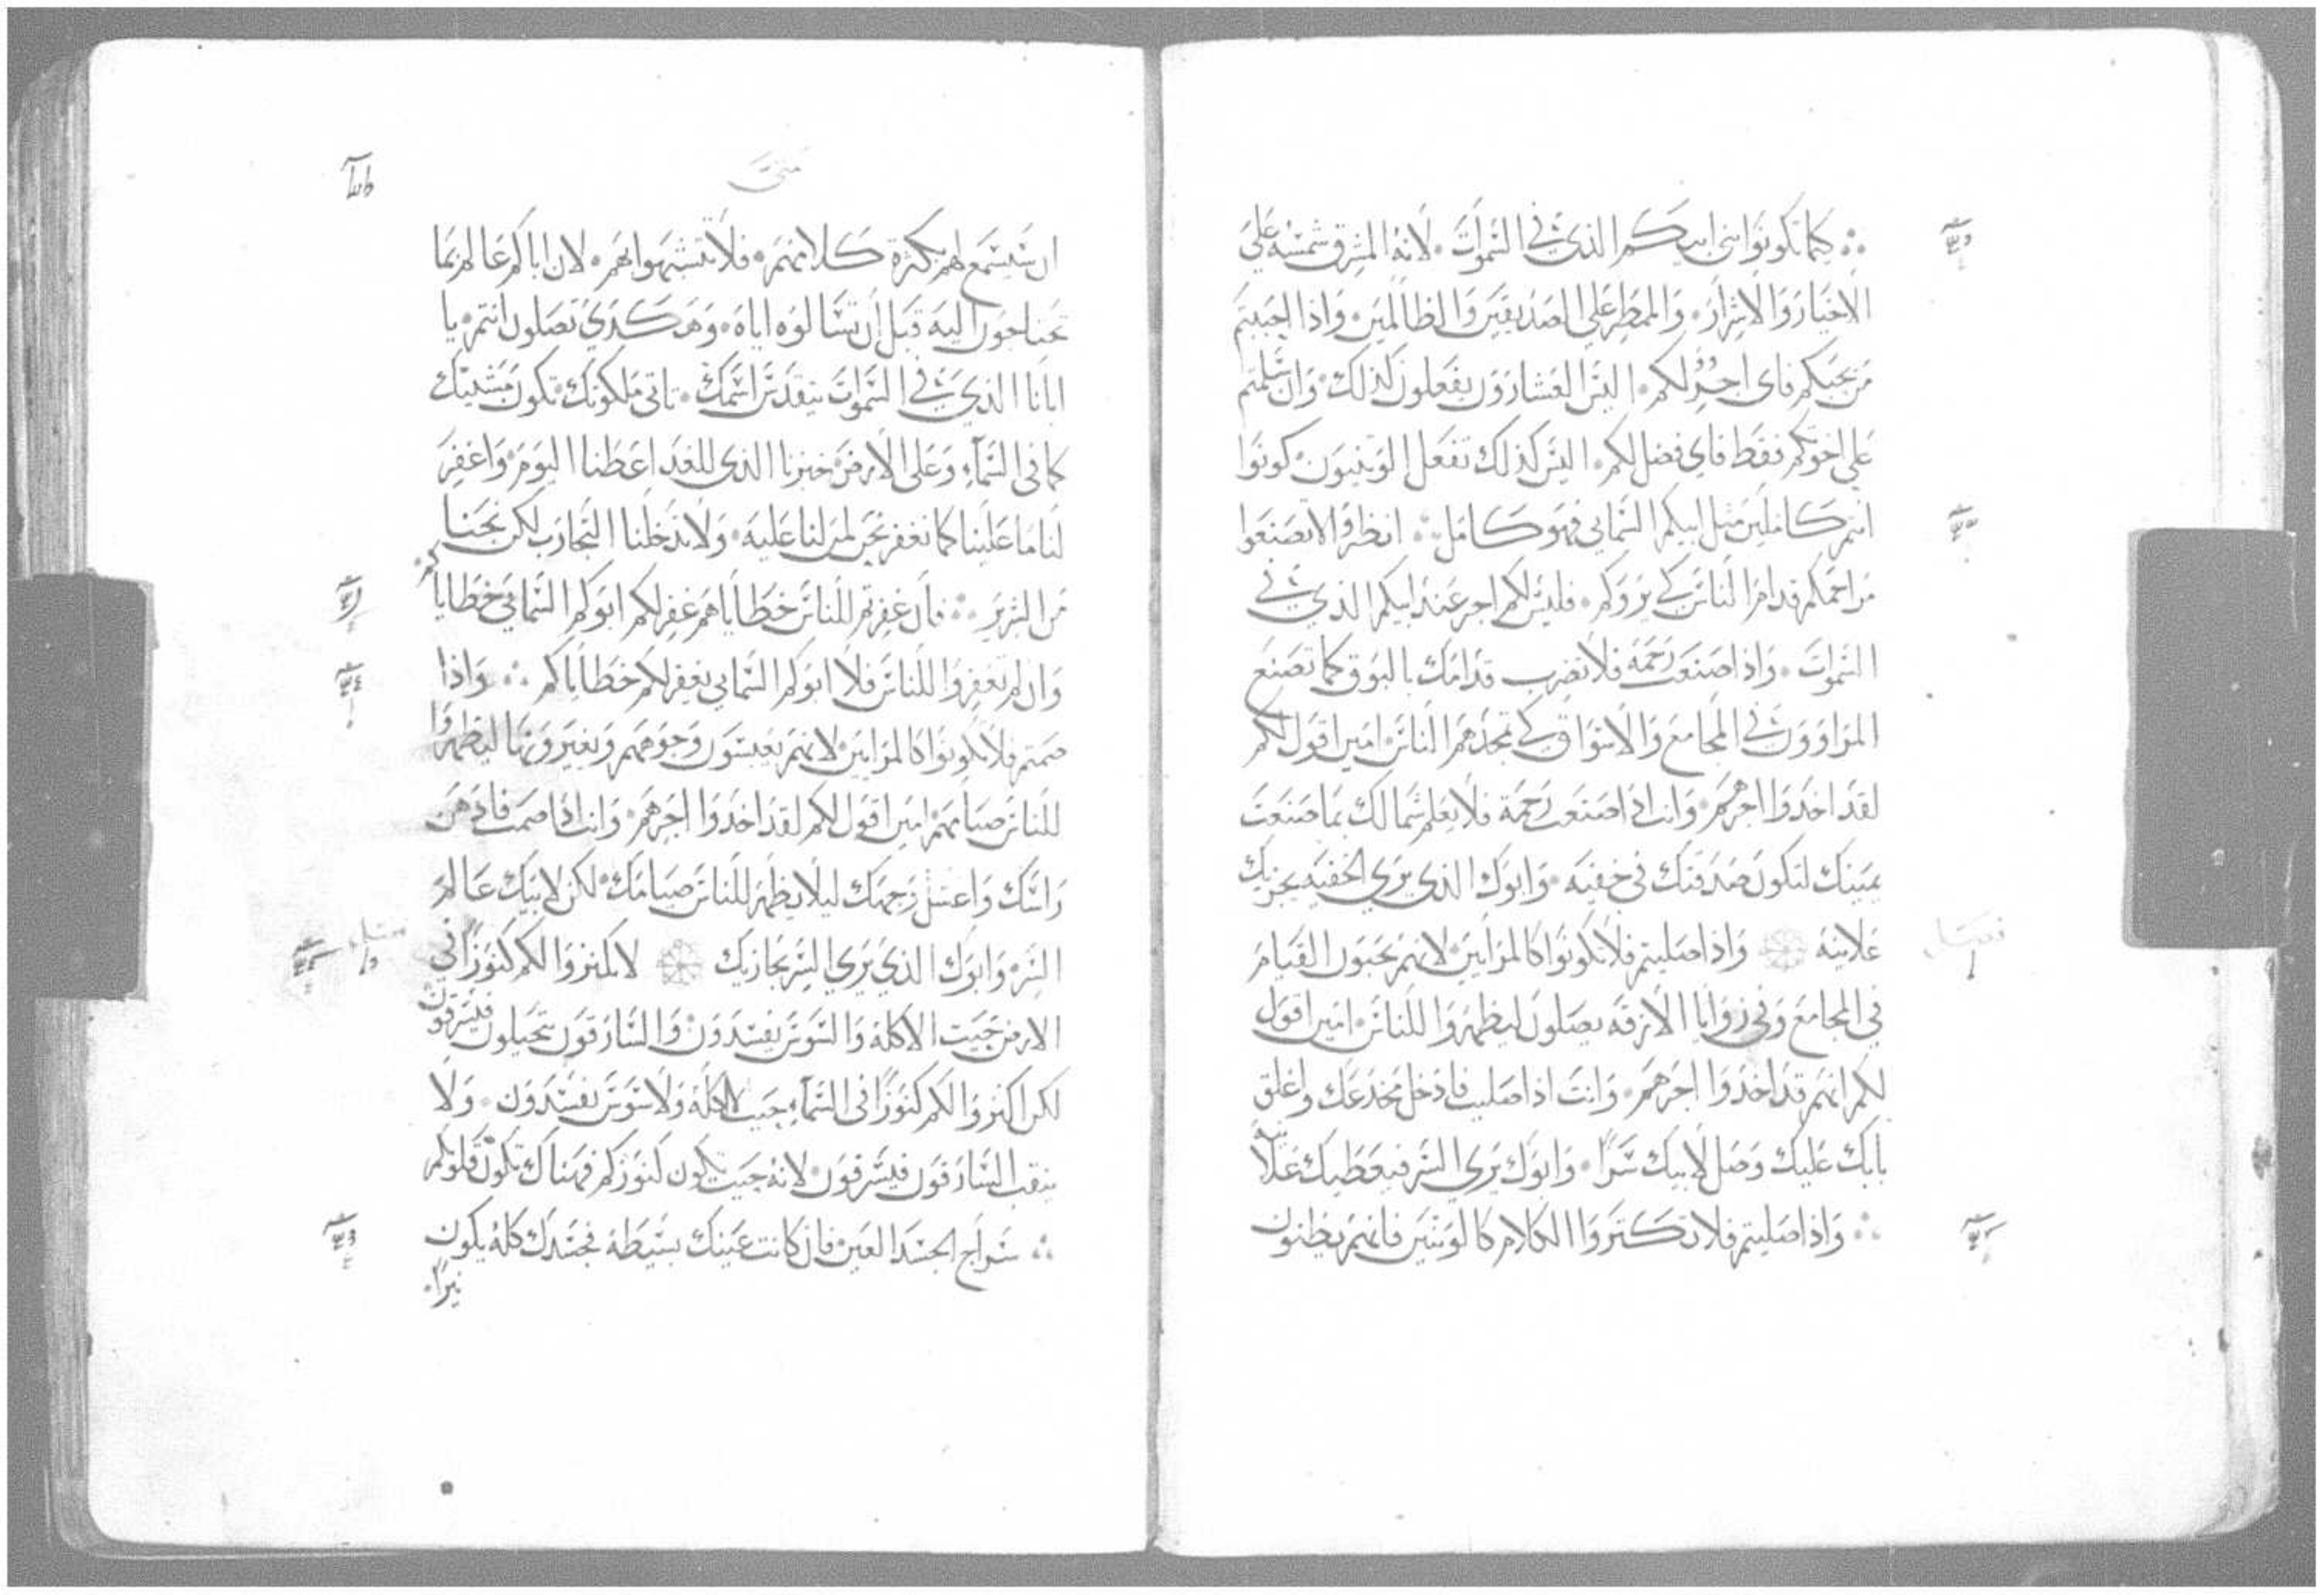 كما تكونوا بنى ابيكم الذي في السموات لانه المشرق شمسه على
الاخيار والاشرار والممطر على الصديقين والظالمين واذا احببتم
من يحبكم فاى اجر لكم اليس العشارون يفعلون كذلك وان سلمتم
على اخوتكم فقط فاي فضل لكم اليس كذلك تفعل الوثنيون كونوا
انتم كاملين مثل ابيكم السمايي فهو كامل انظروا لا تصنعوا
مراحمكم قدام الناس كي يروكم فليس لكم اجر عند ابيكم الذي في
السموات واذا صنعت رحمة فلا تضرب قدامك بالبوق كما تصنع
المراوون في المجامع والاسواق كي تمجدهم الناس امين اقول لكم
لقد اخذوا اجرهم وانت اذا صنعت رحمة فلا تعلم شمالك بما صنعت
يمينك لتكون صدقتك في خفيه وابوك الذي يرى الخفيه يجزيك
علانيه واذا صليتم فلا تكونوا كالمرايين لانهم يحبون القيام
في المجامع وفي زوايا الازقه يصلون ليظهروا للناس امين اقول
لكم انهم قد اخذوا اجرهم وانت اذا صليت فادخل مخدعك واغلق
بابك عليك وصل لابيك سرا وابوك يرى السر فيعطيك علانيه
واذا صليتم فلا تكثروا الكلام كالوثنيين فانهم يظنون
فصل
متى
ان سيسمع لهم بكثرة كلامهم فلا تتشبهوا بهم لان اباكم عالم بما
تحتاجون اليه قبل ان تسالوه اياه وهكذي تصلون انتم يا
ابانا الذي في السموات يتقدس اسمك تاتى ملكوتك تكون مشيتك
كما في السماء وعلى الارض خبزنا الذي للغد اعطنا اليوم واغفر
لنا ما علينا كما نغفر نحن لمن لنا عليه ولا تدخلنا التجارب لكن نجنا
من الشرير فان غفرتم للناس خطاياهم غفر لكم ابوكم السمايي خطاياكم
وان لم تغفروا للناس فلا ابوكم السمايي يغفر لكم خطاياكم واذا
صمتم فلا تكونوا كالمرايين لانهم يعبسون وجوههم ويغيرونها ليظهروا
للناس صيامهم امين اقول لكم لقد اخذوا اجرهم وانت اذا صمت فادهن
راسك واغسل وجهك ليلا يظهر للناس صيامك لكن لابيك عالم
السر وابوك الذي يرى السر يجازيك لا تكنزوا لكم كنوزا في
الارض حيت الاكلة والسوس يفسدون والسارقون يتحيلون فيسرقون
لكن اكنزوا لكم كنوزا في السماء حيت لا اكلة ولا سوس يفسدون ولا
ينقب السارقون فيسرقون لانه حيت تكون كنوزكم فهناك تكون قلوبكم
سراج الجسد العين فان كانت عينك بسيطة فجسدك كله يكون
نيرا